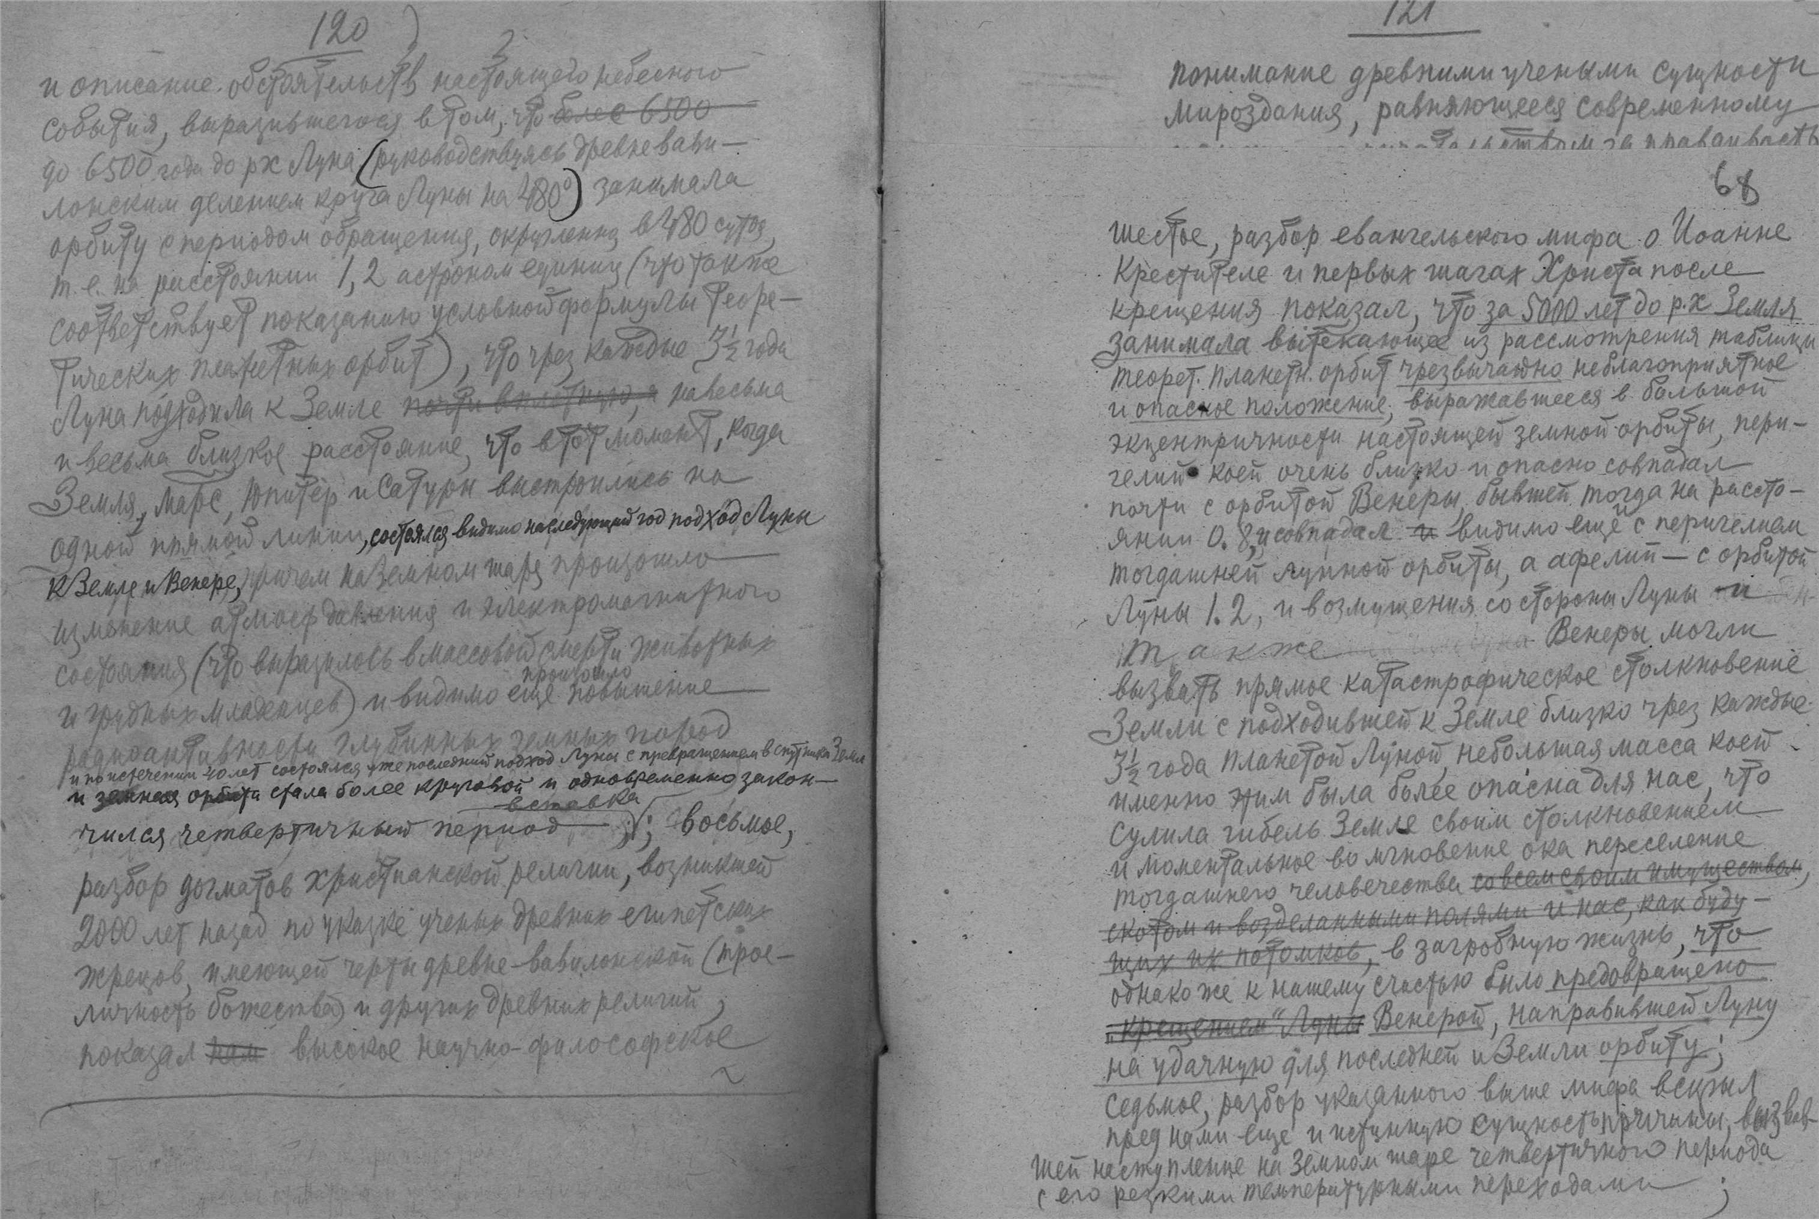 120
и описание обстоятельств настоящего небесного
события, выразившегося в том, что более 6500
до 6500 года до рх Луна (руководствуясь древневави-
лонским делением круга Луны на 480°) занимала
орбиту с периодом обращения, округленно в 480 суток,
т.е. на расстоянии 1,2 астроном единиц (что также
соответствует показанию условной формулы теоре-
тических планетных орбит), что чрез каждые 3½ года
Луна подходила к Земле почти вплотную, на весьма
и весьма близкое расстояние, что в тот момент, когда
Земля, Марс, Юпитер и Сатурн выстроились на
одной прямой линии, состоялся видимо на следующий год подход Луны
к Земле и Венере, причем на Земном шаре произошло
изменение атмосф давления и электромагнитного
состояния (что выразилось в массовой смерти животных
и грудных младенцев) и видимо еще произошло повышение
радиоактивности глубинных земных пород
и по истечении 40 лет состоялся уже последний подход Луны с превращением в спутника Земли
и земная орбита стала более круговой и одновременно закон-
вставка
чился четвертичный период ; восьмое,
разбор догматов христианской религии, возникшей
2000 лет назад по указке ученых древних египетских
жрецов, имеющей черты древне-вавилонской (трое-
личность божества) и других древних религий,
показал нам высокое научно-философское
121
понимание древними учеными сущности
мироздания, равняющееся современному
68
шестое, разбор евангельского мифа о Иоанне
Крестителе и первых шагах Христа после
крещения показал, что за 5000 лет до р.х Земля
занимала вытекающее из рассмотрения таблицы
теорет. планетн. орбит чрезвычайно неблагоприятное
и опасное положение, выражавшееся в большой
эксцентричности настоящей земной орбиты, пери-
гелий коей очень близко и опасно совпадал
почти с орбитой Венеры, бывшей тогда на рассто-
янии 0.8, и совпадал и видимо ещё с перигелием
тогдашней лунной орбиты, а афелий — с орбитой
Луны 1.2, и возмущения со стороны Луны и
также Венеры могли
вызвать прямое катастрофическое столкновение
Земли с подходившей к Земле близко чрез каждые
3½ года планетой Луной, небольшая масса коей
именно этим была более опасна для нас, что
сулила гибель Земле своим столкновением
и моментальное во мгновение ока переселение
тогдашнего человечества со всем своим имуществом,
скотом и возделанными полями и нас, как буду-
щих их потомков, в загробную жизнь, что
однако же к нашему счастью было предовращено
„крещением" Луны Венерой, направившей Луну
на удачную для последней и Земли орбиту;
седьмое, разбор указанного выше мифа вскрыл
пред нами еще и истинную сущность причины, вызвав-
шей наступление на Земном шаре четвертичного периода
с его резкими температурными переходами ;